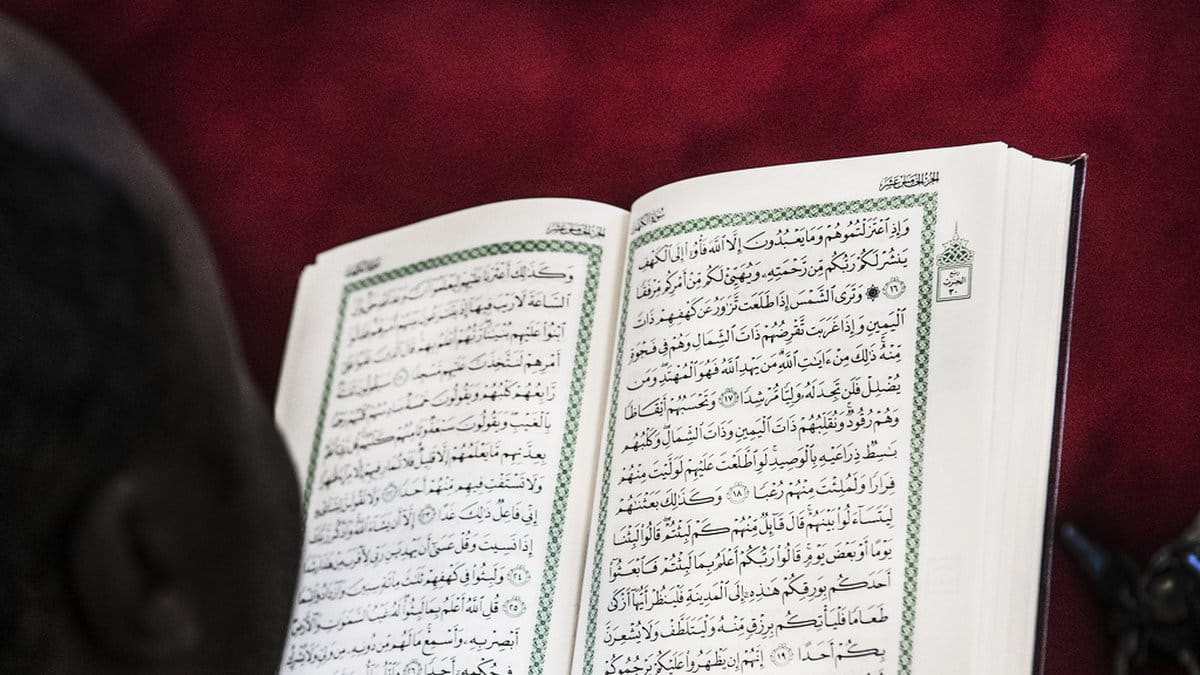 الجزء الخامس عشر
سورة الكهف
وَإِذِ ٱعۡتَزَلۡتُمُوهُمۡ وَمَا يَعۡبُدُونَ إِلَّا ٱللَّهَ فَأۡوُۥٓاْ إِلَى ٱلۡكَهۡفِ
يَنشُرۡ لَكُمۡ رَبُّكُم مِّن رَّحۡمَتِهِۦ وَيُهَيِّئۡ لَكُم مِّنۡ أَمۡرِكُم مِّرۡفَقٗا
١٦ ۞ وَتَرَى ٱلشَّمۡسَ إِذَا طَلَعَت تَّزَٰوَرُ عَن كَهۡفِهِمۡ ذَاتَ
ٱلۡيَمِينِ وَإِذَا غَرَبَت تَّقۡرِضُهُمۡ ذَاتَ ٱلشِّمَالِ وَهُمۡ فِي فَجۡوَةٖ
مِّنۡهُۚ ذَٰلِكَ مِنۡ ءَايَٰتِ ٱللَّهِۗ مَن يَهۡدِ ٱللَّهُ فَهُوَ ٱلۡمُهۡتَدِۖ وَمَن
يُضۡلِلۡ فَلَن تَجِدَ لَهُۥ وَلِيّٗا مُّرۡشِدٗا ١٧ وَتَحۡسَبُهُمۡ أَيۡقَاظٗا
وَهُمۡ رُقُودٞۚ وَنُقَلِّبُهُمۡ ذَاتَ ٱلۡيَمِينِ وَذَاتَ ٱلشِّمَالِۖ وَكَلۡبُهُم
بَٰسِطٞ ذِرَاعَيۡهِ بِٱلۡوَصِيدِۚ لَوِ ٱطَّلَعۡتَ عَلَيۡهِمۡ لَوَلَّيۡتَ مِنۡهُمۡ
فِرَارٗا وَلَمُلِئۡتَ مِنۡهُمۡ رُعۡبٗا ١٨ وَكَذَٰلِكَ بَعَثۡنَٰهُمۡ
لِيَتَسَآءَلُواْ بَيۡنَهُمۡۚ قَالَ قَآئِلٞ مِّنۡهُمۡ كَمۡ لَبِثۡتُمۡۖ قَالُواْ لَبِثۡنَا
يَوۡمًا أَوۡ بَعۡضَ يَوۡمٖۚ قَالُواْ رَبُّكُمۡ أَعۡلَمُ بِمَا لَبِثۡتُمۡ فَٱبۡعَثُوٓاْ
أَحَدَكُم بِوَرِقِكُمۡ هَٰذِهِۦٓ إِلَى ٱلۡمَدِينَةِ فَلۡيَنظُرۡ أَيُّهَآ أَزۡكَىٰ
طَعَامٗا فَلۡيَأۡتِكُم بِرِزۡقٖ مِّنۡهُ وَلۡيَتَلَطَّفۡ وَلَا يُشۡعِرَنَّ
بِكُمۡ أَحَدًا ١٩ إِنَّهُمۡ إِن يَظۡهَرُواْ عَلَيۡكُمۡ يَرۡجُمُوكُمۡ
ربع
الحزب
٣٠
الجزء الخامس عشر
وَكَذَٰلِكَ أَعۡثَرۡنَا عَلَيۡهِمۡ لِيَعۡلَمُوٓاْ أَنَّ
ٱلسَّاعَةَ لَا رَيۡبَ فِيهَآ إِذۡ
ٱبۡنُواْ عَلَيۡهِم بُنۡيَٰنٗاۖ رَّبُّهُمۡ أَعۡلَمُ بِهِمۡۚ قَالَ ٱلَّذِينَ غَلَبُواْ
أَمۡرِهِمۡ لَنَتَّخِذَنَّ عَلَيۡهِم مَّسۡجِدٗا ٢١ سَيَقُولُونَ ثَلَٰثَةٞ
رَّابِعُهُمۡ كَلۡبُهُمۡ وَيَقُولُونَ خَمۡسَةٞ سَادِسُهُمۡ كَلۡبُهُمۡ
بِٱلۡغَيۡبِۖ وَيَقُولُونَ سَبۡعَةٞ وَثَامِنُهُمۡ كَلۡبُهُمۡۚ
بِعِدَّتِهِم مَّا يَعۡلَمُهُمۡ إِلَّا قَلِيلٞۗ فَلَا تُمَارِ فِيهِمۡ إِلَّا مِرَآءٗ ظَٰهِرٗا
وَلَا تَسۡتَفۡتِ فِيهِم مِّنۡهُمۡ أَحَدٗا ٢٢ وَلَا تَقُولَنَّ لِشَاْيۡءٍ
إِنِّي فَاعِلٞ ذَٰلِكَ غَدًا ٢٣ إِلَّآ أَن يَشَآءَ ٱللَّهُۚ وَٱذۡكُر رَّبَّكَ
إِذَا نَسِيتَ وَقُلۡ عَسَىٰٓ أَن يَهۡدِيَنِ رَبِّي لِأَقۡرَبَ مِنۡ هَٰذَا رَشَدٗا
٢٤ وَلَبِثُواْ فِي كَهۡفِهِمۡ ثَلَٰثَ مِاْئَةٖ سِنِينَ وَٱزۡدَادُواْ تِسۡعٗا
٢٥ قُلِ ٱللَّهُ أَعۡلَمُ بِمَا لَبِثُواْۖ لَهُۥ غَيۡبُ ٱلسَّمَٰوَٰتِ وَٱلۡأَرۡضِۖ
أَبۡصِرۡ بِهِۦ وَأَسۡمِعۡۚ مَا لَهُم مِّن دُونِهِۦ مِن وَلِيّٖ وَلَا يُشۡرِكُ
فِي حُكۡمِهِۦٓ أَحَدٗا ٢٦